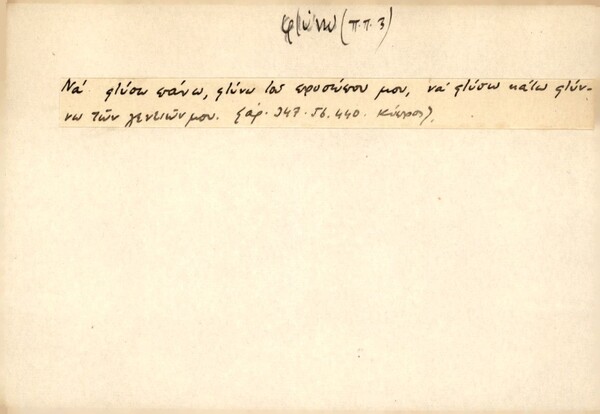 φτύνω (π.π. 3)
Νά φτύσω ἐπάνω, φτύνω τοῦ προσώπου μου, νά φτύσω κάτω φτύν-
νω τῶν γενειῶν μου. (ἀρ. 347. 56. 440. Κύπρος).